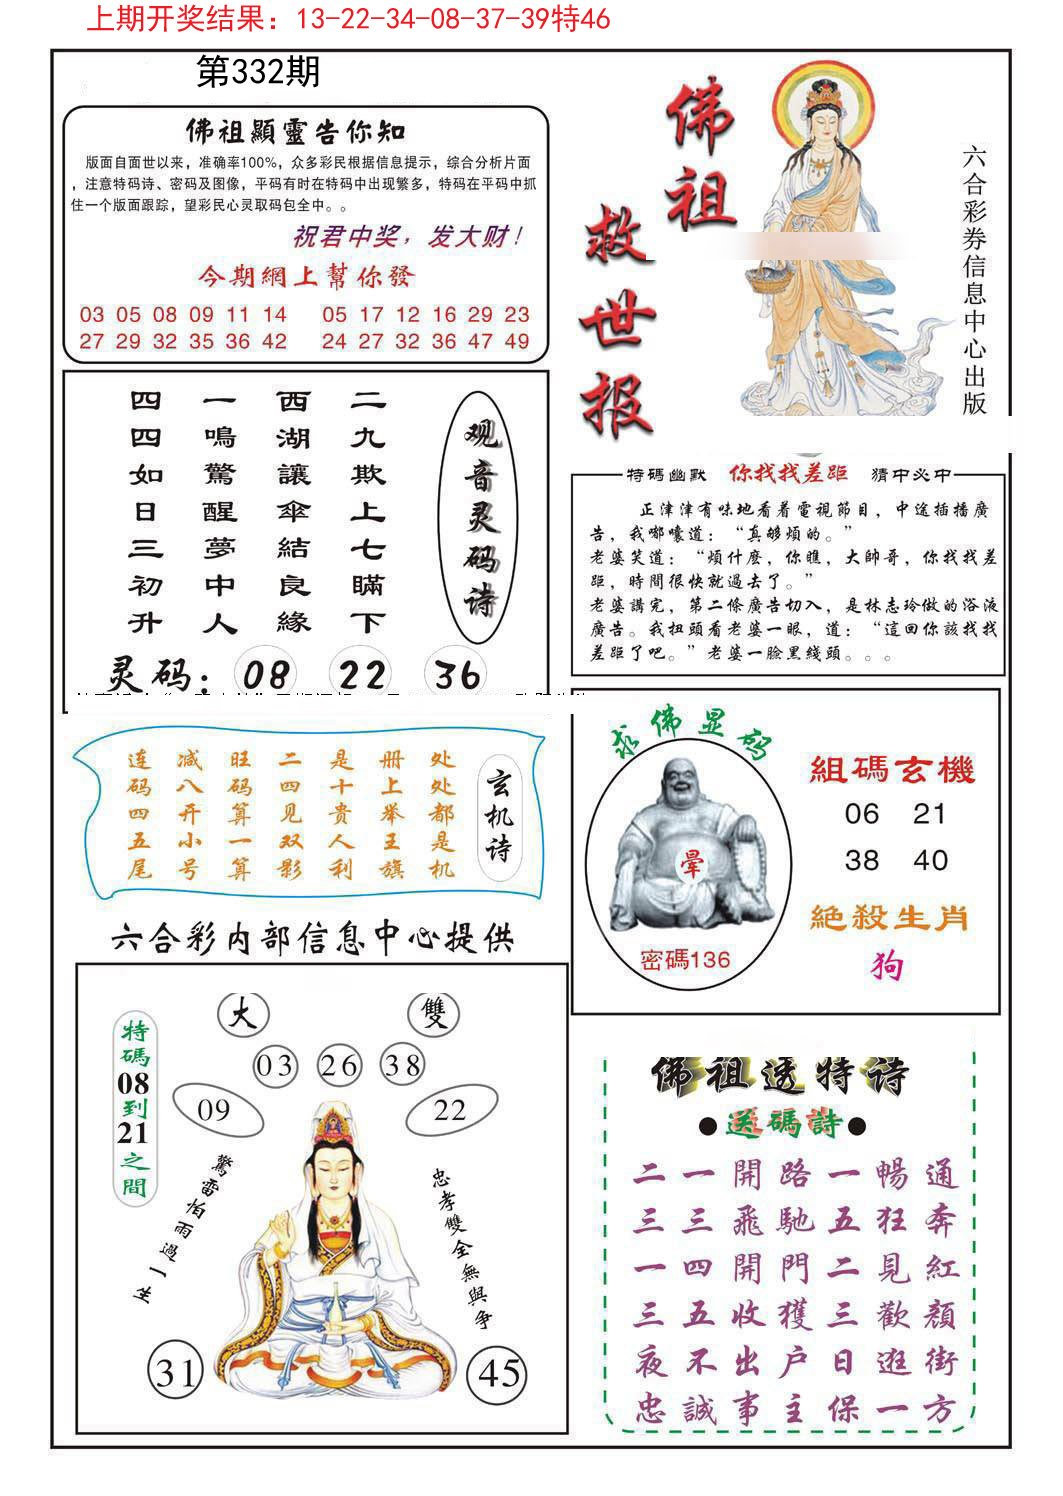 上期开奖结果：13-22-34-08-37-39特46
第332期
佛祖顯靈告你知
版面自面世以来，准确率100%，众多彩民根据信息提示，综合分析片面
，注意特码诗、密码及图像，平码有时在特码中出现繁多，特码在平码中抓
住一个版面跟踪，望彩民心灵取码包全中。。
祝君中奖，发大财！
今期網上幫你發
03 05 08 09 11 14 05 17 12 16 29 23
27 29 32 35 36 42 24 27 32 36 47 49
佛祖
救世报
六合彩券信息中心出版
观音灵码诗
二九欺上七瞞下
西湖讓傘結良緣
一鳴驚醒夢中人
四四如日三初升
灵码：08 22 36
特碼幽默 你找找差距 猜中必中
正津津有味地看着電視節目，中途插播廣
告，我嘟囔道：“真够煩的。”
老婆笑道：“煩什麽，你瞧，大帥哥，你找找差
距，時間很快就過去了。”
老婆講完，第二條廣告切入，是林志玲做的浴液
廣告。我扭頭看老婆一眼，道：“這回你該找找
差距了吧。”老婆一臉黑綫頭。。。
玄机诗
处处都是机
册上举王旗
是十贵人利
二四见双影
旺码算一算
减八开小号
连码四五尾
求佛显码
暈
密碼136
組碼玄機
06 21
38 40
絶殺生肖
狗
六合彩内部信息中心提供
特碼08到21之間
大 雙
03 26 38
09 22
驚雷怕雨過一生
忠孝雙全無與争
31 45
佛祖透特诗
●送碼詩●
二一開路一暢通
三三飛馳五狂奔
一四開門二見紅
三五收獲三歡顏
夜不出户日逛街
忠誠事主保一方